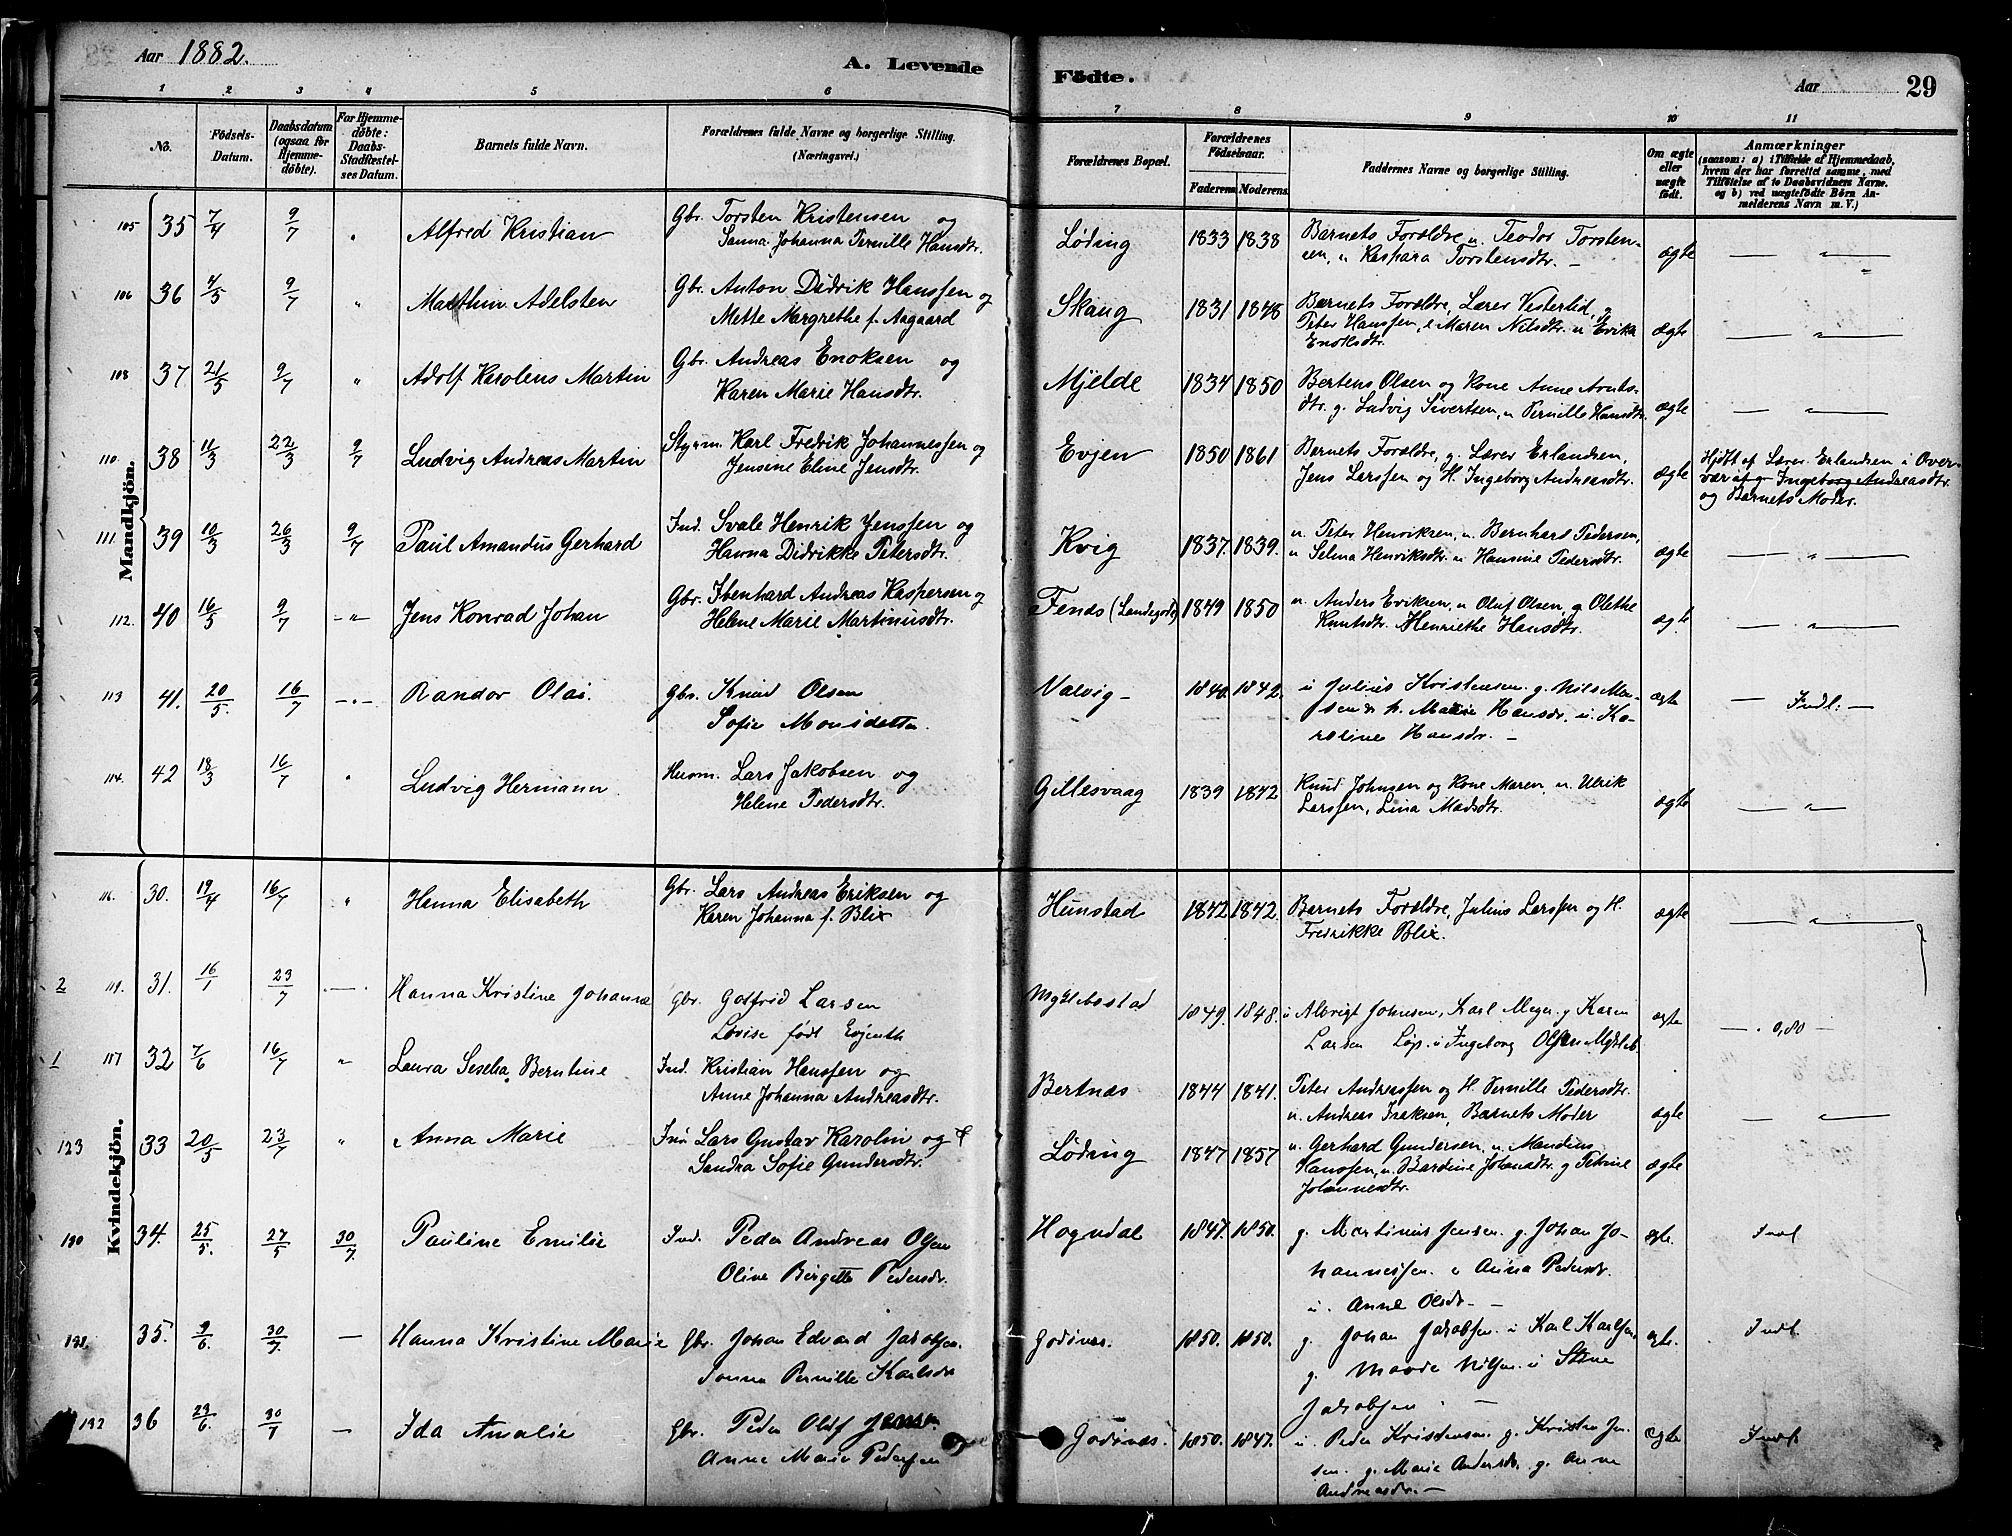 Aar 1882.
A. Levende Födte.
Aar
29
1 2 3 4 5 6 7 8 9 10 11
No.
Födsels-Datum.
Daabsdatum (ogsaa for Hjemmedöbte).
For Hjemmedöbte: Daabs-Stadfæstelses Datum.
Barnets fulde Navn.
Forældrenes fulde Navne og borgerlige Stilling.
(Næringsvei.)
Forældrenes Bopæl.
Forældrenes Födselsaar.
Faderens Moderens.
Faddernes Navne og borgerlige Stilling.
Om ægte eller uægte födt.
Anmærkninger
(saasom: a) i Tilfælde af Hjemmedaab,
hvem der har forrettet samme, med
Tilföielse af to Daabsvidners Navne.
og b) ved uægtefödte Börn An-
melderens Navn m. V.)
Mandkjön.
105 35 7/4 9/7 " Alfred Kristian Gbr. Torsten Kristensen og
Sanna Johanna Pernille Hansdtr. Løding 1833 1838 Barnets Forældre, u. Teodor Torsten-
sen, u Kaspara Torstensdtr. — ægte — " —
106 36 4/5 9/7 " Marthin Adelsten Gbr. Anton Didrik Hanssen og
Mette Margrethe f. Aagaard Skaug 1831 1848 Barnets Forældre, Lærer Vesterlid, g
Peter Hanssen, e Maren Nilsdtr. u Erika
Enoksdtr. ægte — " —
108 37 21/5 9/7 " Adolf Karolens Martin Gbr. Andreas Enoksen og
Karen Marie Hansdtr. Mjelde 1834 1850 Bertens Olsen og Kone Anne Arnts-
dtr. g. Ludvig Sivertsen, u Pernille Hansdtr. ægte — " —
110. 38 11/3 22/3 9/7 Ludvig Andreas Martin Styrm. Karl Fredrik Johannessen og
Jensine Eline Jensdtr. Evjen 1850 1861 Barnets Forældre, g. Lærer Erlandsen,
Jens Larssen og H. Ingeborg Andreasdtr. ægte Hjdbt af Lærer Erlandsen i Over-
vær af g Ingeborg Andreasdtr.
og Barnets Moder.
111. 39 10/3 26/3 9/7 Paul Amandus Gerhard Ind. Svale Henrik Jenssen og
Hanna Didrikke Petersdtr. Kvig 1837. 1839. u. Peter Henriksen, u. Bernhard Pedersen,
u Selma Henriksdtr. u Hansine Pedersdtr. ægte — " —
112. 40 16/5 9/7 — " — Jens Konrad Johan Gbr. Ibenhard Andreas Kaspersen og
Helene Marie Martinusdtr. Fenes (Landego) 1849 1850 u. Anders Eriksen, u Oluf Olsen, g Olethe
Knutsdtr. Henriette Hansdtr. ægte — " —
113 41. 20/5. 16/7 — " — Randor Olai. Gbr. Knud Olsen
Sofie Monsdatter Valvig — 1840. 1842. u Julius Kristensen. g. Nils Mon-
sen h. Marie Hansdr. u. Ka-
roline Hansdr. — ægte — Indl: —
114. 42 18/3 16/7 " Ludvig Hermann Husm. Lars Jakobsen og
Helene Pedersdtr. Gillesvaag 1839 1842 Knud Johnsen og Kone Maren, u. Ulrik
Larssen, Lina Madsdtr. ægte — " —
Kvindekjön.
116. 30. 19/4 16/7 " Hanna Elisabeth Gbr. Lars Andreas Eriksen og
Karen Johanna f. Blix Hunstad 1842 1842. Barnets Forældre, Julius Larssen og H.
Fredrikke Blix. ægte — " —
2 119. 31. 16/1 23/7 — Hanna Kristine Johanna Gbr. Gotfrid Larsen
Lovise født Evjenth Myklebostad 1849. 1848. u Albrigt Johnsen, Karl Meyer. g Karen
Larsen Løp. u Ingeborg Olsen Mykleb. ægte — 0,80 —
1 117 32 7/6 16/7 " Laura Seselia Berntine Ind. Kristian Hanssen og
Anne Johanna Andreasdtr. Bertnæs 1844 1841. Peter Andreassen og H. Pernille Pedersdtr.
u. Andreas Iraksen, Barnets Moder ægte — " —
123 33 20/5 23/7 " Anna Marie Lars Gustav Karolin og
Sandra Sofie Gundersdtr. Løding 1847 1857 u. Gerhard Gundersen, u. Mandius
Hanssen, u. Bardine Johansdtr. g Petrine
Johannesdtr. ægte
130 34. 25/5. 27/5 30/7. Pauline Emilie Ind. Peder Andreas Olsen
Oline Birgette Pedersdr. Hogndal 1847. 1850. g. Martinus Jensen. g. Johan Jo-
hannessen. u Anna Pedersdr.
u. Anne Olsdr. — ægte. Indl
131. 35. 9/6. 30/7. — Hanna Kristine Marie Gbr. Johan Edvard Jakobsen.
Janna Pernille Karlsdr Godinæs. 1850. 1850. g. Johan Jakobsen. u Karl Karlsen
g. Maade Nilsen. u Stine
Jakobsen. — ægte. Indl.
132 36 23/6. 30/7 — Ida Amalie Gbr. Peder Oluf Jensen
Anne Marie Pedersen Godinæs. 1850. 1847. u. Peder Kristensen. g. Kristen Jen-
sen. g. Marie Andersdr. g. Anne
Andreasdr. — Ægte Indl.